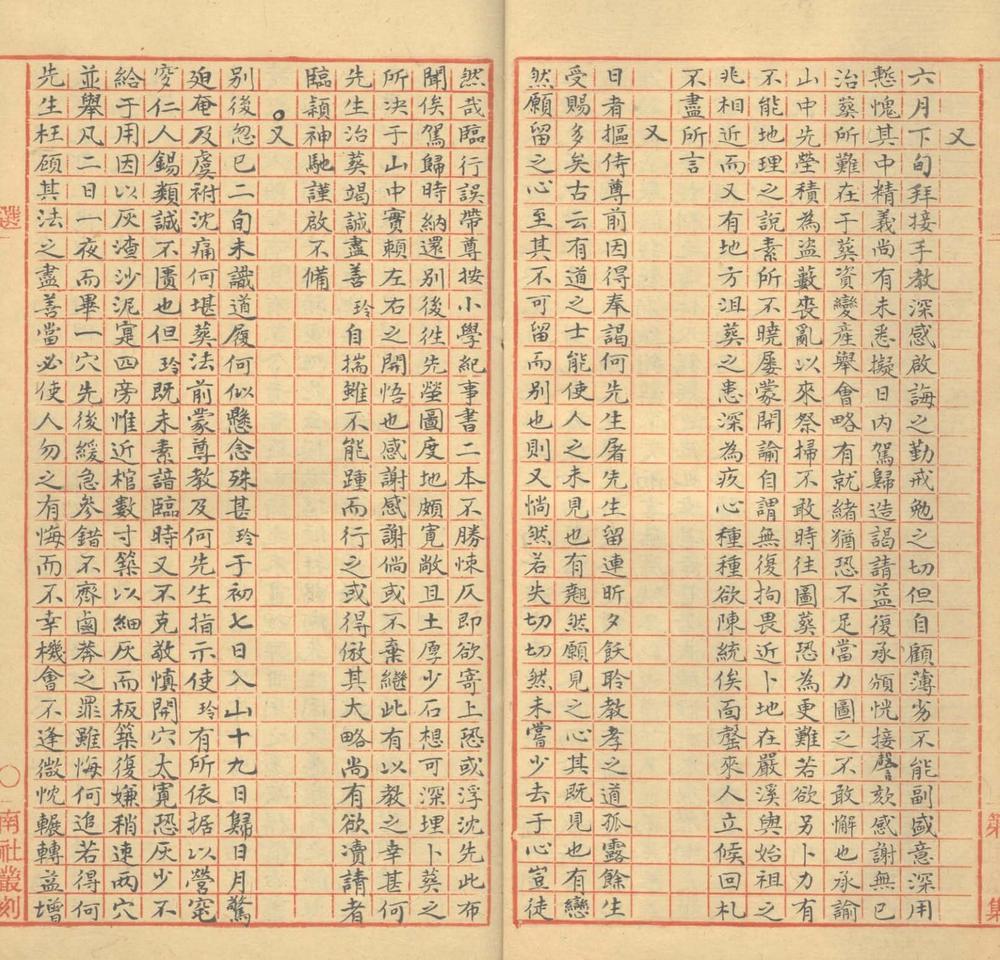 又
六月下旬拜接手教深感啟誨之勤戒勉之切但自顧薄劣不能副盛意深用
慙愧其中精義尚有未悉擬日內駕歸造謁請益復承頒恍接謦欬感謝無已
治葬所難在于葬資變產舉會略有就緒猶恐不足當力圖之不敢懈也承諭
山中先塋積為盜藪喪亂以來祭掃不敢時往圖葬恐為更難若欲另卜力有
不能地理之說素所不曉屡蒙開諭自謂無復拘畏近卜地在嚴溪與始祖之
兆相近而又有地方沮葬之患深為疚心種種欲陳統俟面罄來人立候回札
不盡所言
又
日者摳侍尊前因得奉謁何先生屠先生留連昕夕飫聆教孝之道孤露餘生
受賜多矣古云有道之士能使人之未見也有翹然願見之心其既見也有戀
然願留之心至其不可留而別也則又惝然若失切切然未嘗少去于心豈徒
然哉臨行誤帶尊按小學紀事書二本不勝悚仄即欲寄上恐或浮沈先此布
聞俟駕歸時納還別後徃先塋圖度地頗寬敞且土厚少石想可深埋卜葬之
所决于山中實賴左右之開悟也感謝感謝倘或不棄繼此有以教之幸甚何
先生治葬竭誠盡善玲自揣雖不能踵而行之或得倣其大略尚有欲瀆請者
臨潁神馳謹啟不備
又
別後忽已二旬未識道履何似懸念殊甚玲于初七日入山十九日歸日月驚
廹奄及虞祔沈痛何堪葬法前蒙尊教及何先生指示使玲有所依据以營窀
穸仁人錫類誠不匱也但玲既未素諳臨時又不克敬慎開穴太寬恐灰少不
給于用因以灰渣沙泥寔四旁惟近棺數寸築以細灰而板築復嫌稍速兩穴
並舉凡二日一夜而畢一穴先後緩急參錯不齊鹵莽之罪雖悔何追若得何
先生枉顧其法之盡善當必使人勿之有悔而不幸機會不逢微忱輾轉益增
選
○
南社叢刻
第
集